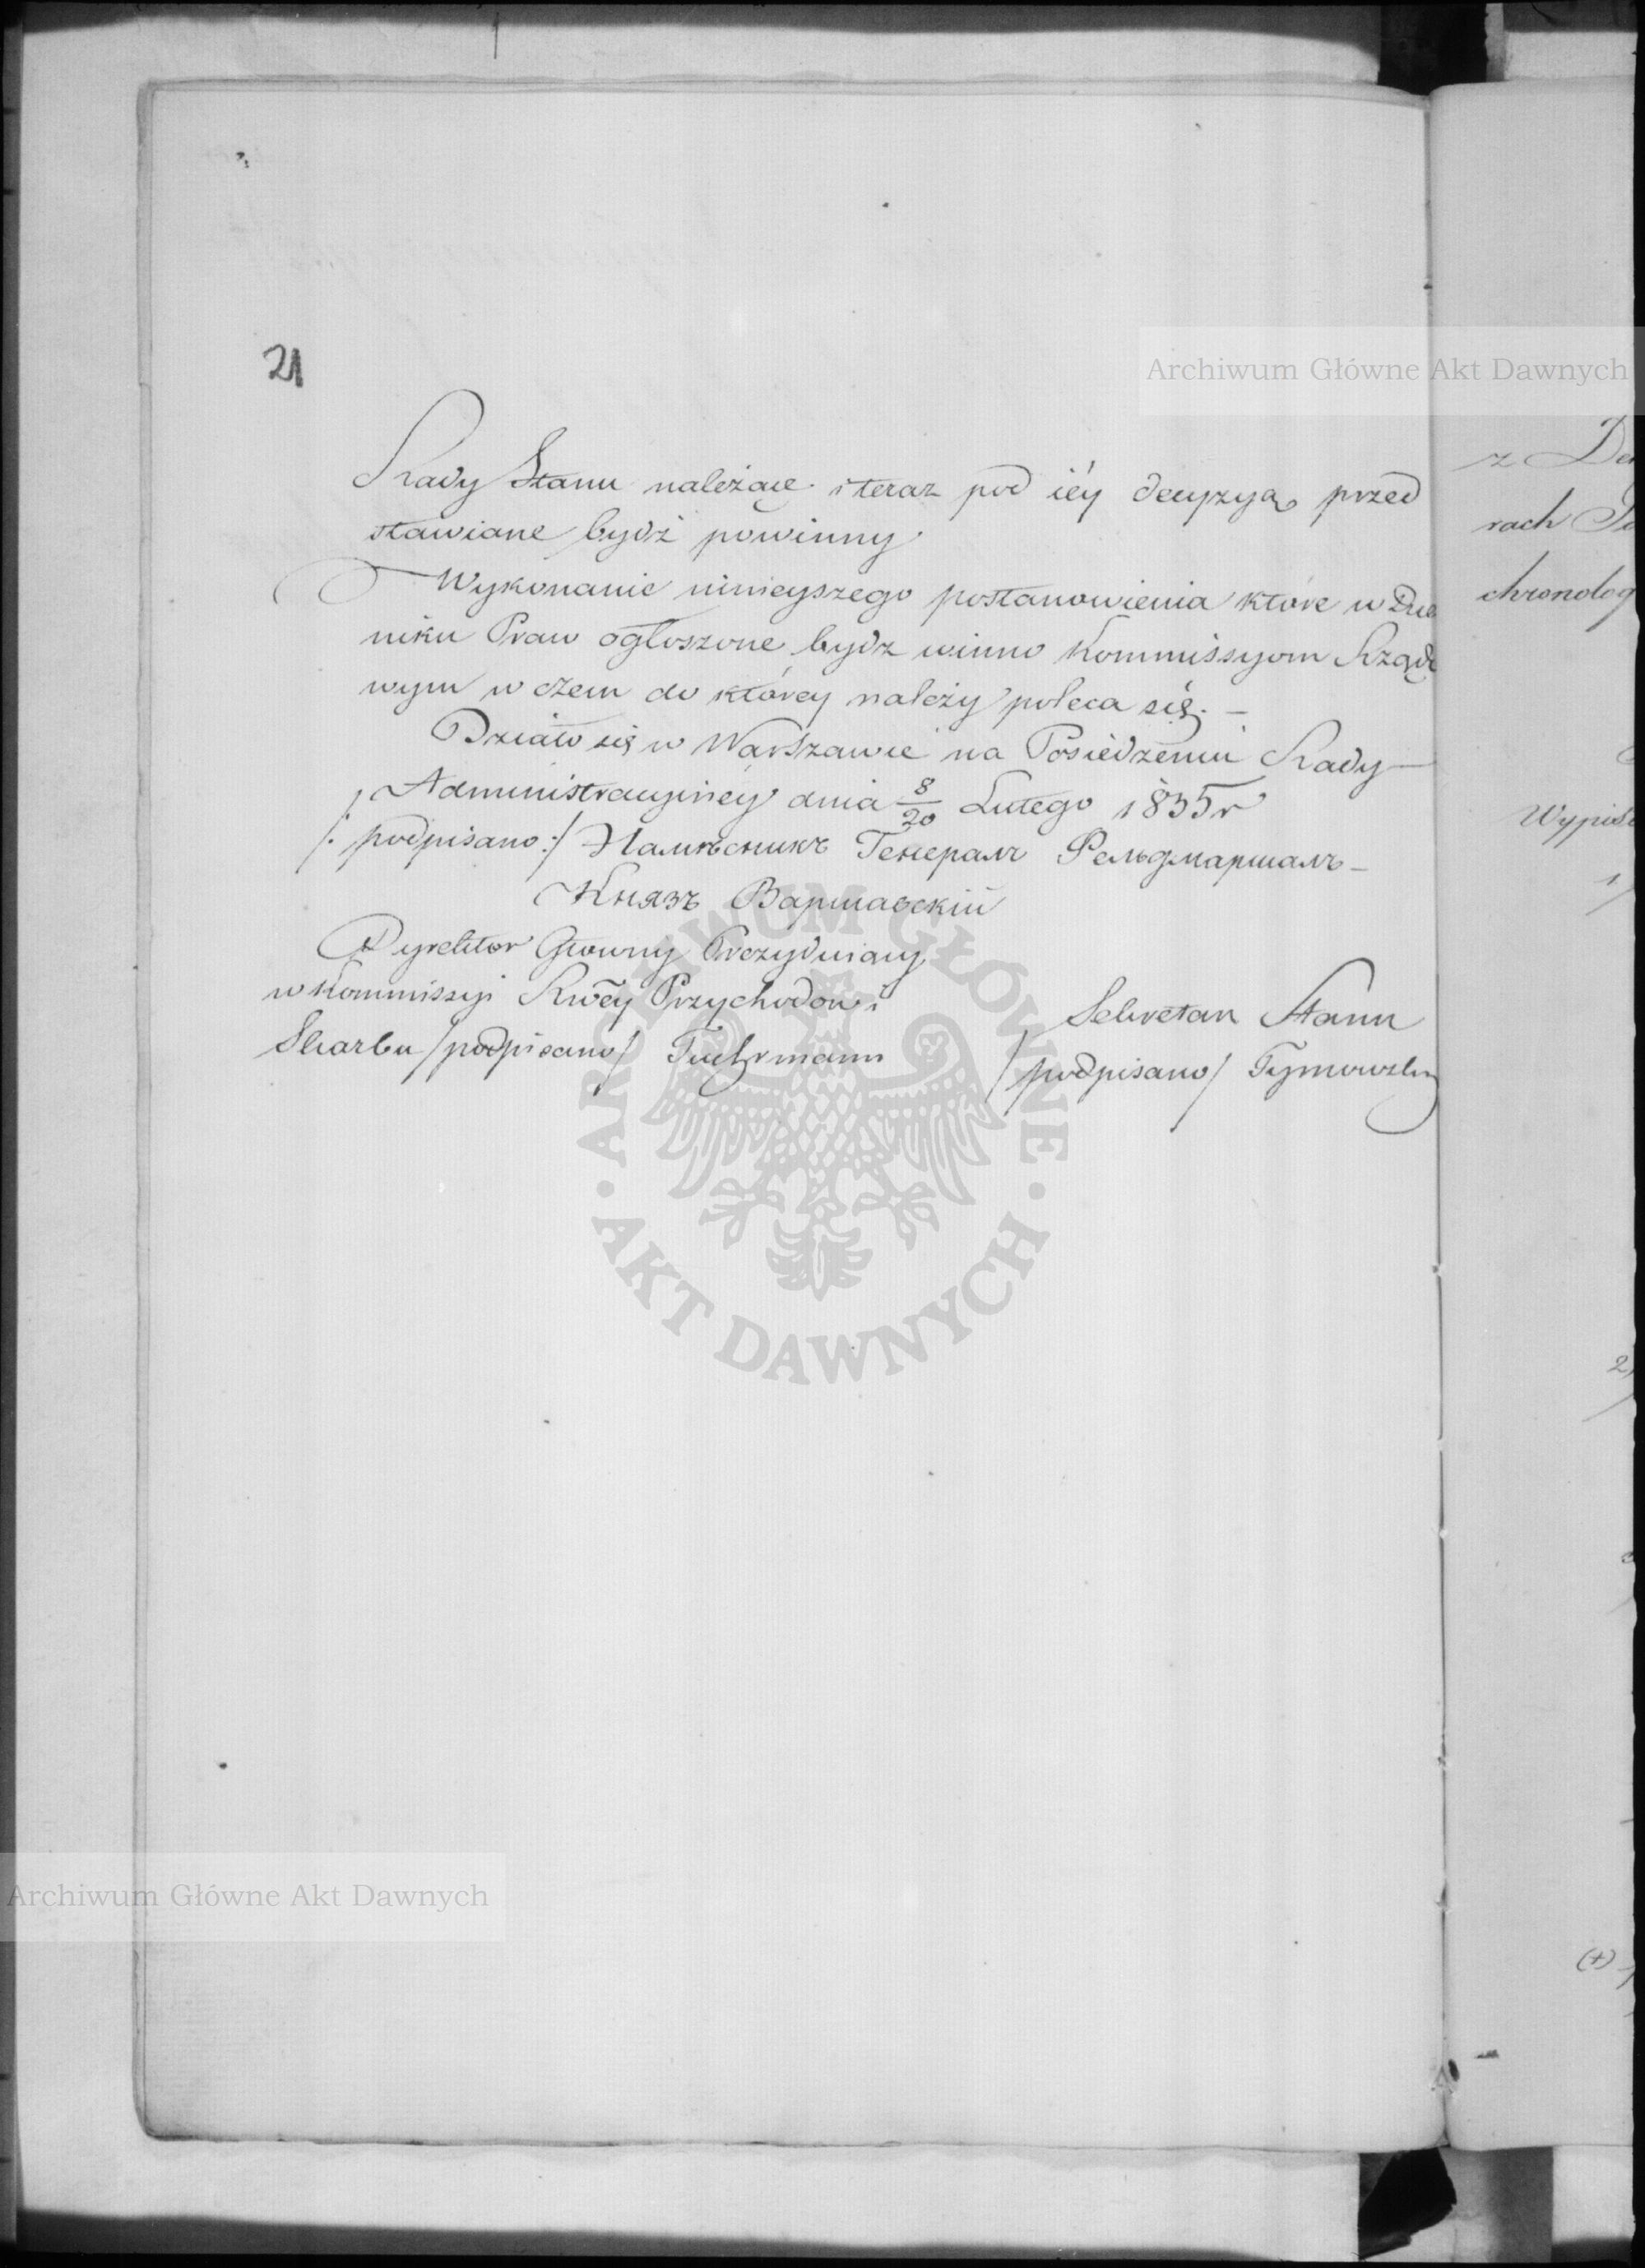 21
Archiwum Główne Akt Dawnych
Rady Stanu należące i teraz pod iéy decyzyą przed
stawiane bydź powinny
Wykonanie ninieyszego postanowienia które w Dzie
niku Praw ogłoszone bydz winno Kommissyom Rządo
wym w czem do którey należy poleca się. —
Działo się w Warszawie na Posiedzeniu Rady —
Administracyiney dnia 8/20 Lutego 1835 r
/: podpisano :/ Намѣсникъ Генералъ Фельдмаршалъ —
Князь Варшавскій
Dyrektor Głowny Prezyduiący
w Kommissyi Rwéy Przychodow i
Skarbu /podpisano/ Fuhrmann
Sekretarz Stanu
/podpisano/ Tymowski
z
rach
chronolog
Wypis
1/
2/
(+)
ARCHIWUM GŁÓWNE
AKT DAWNYCH
Archiwum Główne Akt Dawnych